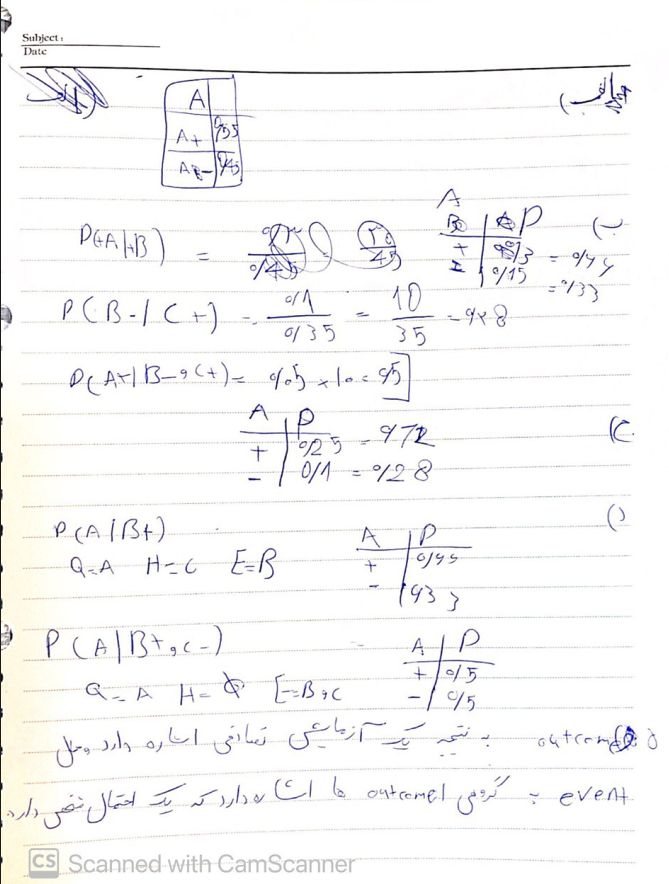 Subject:
Date
الف)
A
A+ 0/55
A- 0/45
ب)
A P
+ 0/3 = 0/66
- 0/15 = 0/33
P(+A|+B) =
P(B-|C+) = 0/1 / 0/35 = 10/35 = 0/28
P(A+|B-,C+) = 0/05 × 10 = 0/5
ج)
A P
+ 0/25 = 0/72
- 0/1 = 0/28
د)
P(A|B+)
Q=A H=C E=B
A P
+ 0/66
- 0/33
P(A|B+,C-)
Q=A H=Φ E=B,C
A P
+ 0/5
- 0/5
outcome به نتیجه یک آزمایش تصادفی اشاره دارد ولی
event به گروهی outcome ها اشاره دارد که یک احتمال دارد.
CS Scanned with CamScanner